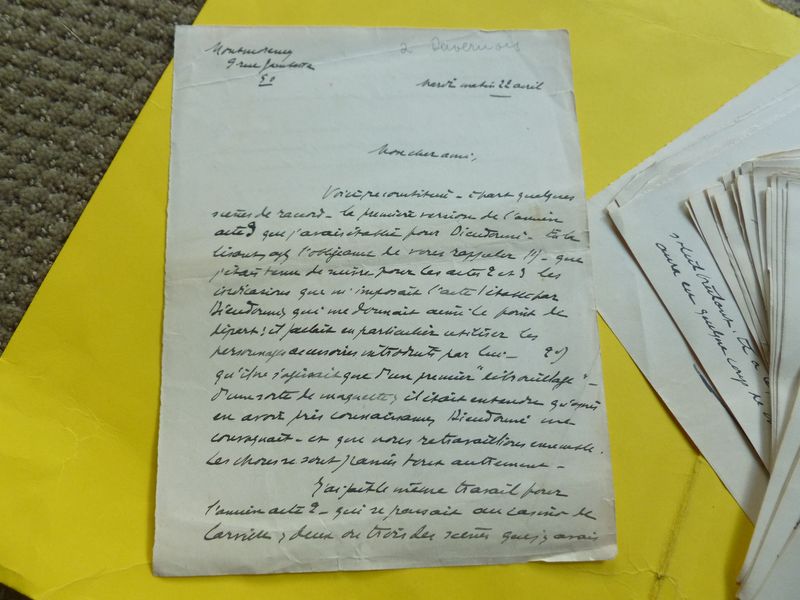 à Duvernois
Montmorency
9 rue Gambetta
S O
Mardi matin 22 avril
Mon cher ami,
Voici reconstituée - à part quelques
scènes de raccord - la première version de l'ancien
acte 3 que j'avais établie pour Dieudonné. En la
lisant, ayez l'obligeance de vous rappeler 1°) - que
j'étais tenu de suivre pour les actes 2 et 3 les
indications que m'imposait l'acte 1 établi par
Dieudonné, qui me donnait ainsi le point de
départ ; il fallait en particulier utiliser les
personnages accessoires introduits par lui - 2°)
qu'il ne s'agissait que d'un premier "débrouillage" -
d'une sorte de maquette ; il était entendu qu'après
en avoir pris connaissance, Dieudonné me
convoquait - et que nous retravaillions ensemble.
Les choses se sont passées tout autrement -
J'ai fait le même travail pour
l'ancien acte 2 - qui se passait au casino de
deux ou trois des scènes que j'y avais
soleil
il a
en quelque